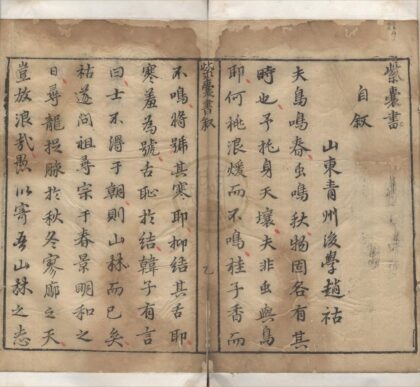 紫囊書
自叙
山東青州後學趙祜
夫鳥鳴春虫鳴秋物固各有其
時也予托身天壤夫非虫與鳥
耶何桃浪煖而不鳴桂子香而
紫囊書叙
乙
不鳴將號其寒耶抑結其舌耶
寒羞為號古恥於結韓子有言
曰士不得于朝則山林而已矣
祜遂問祖尋宗于春景明和之
日尋龍捉脉於秋冬寥廓之天
豈放浪哉愚以寄吾山林之志